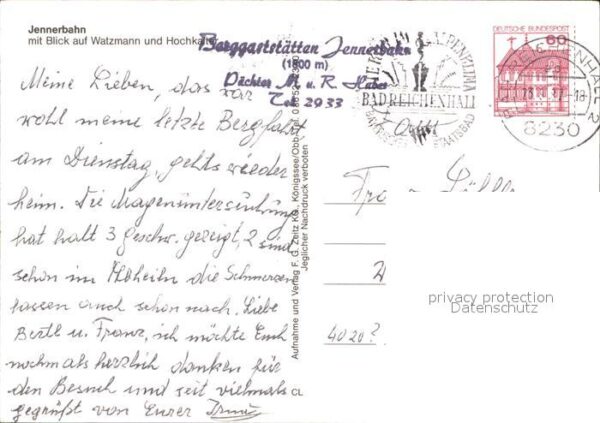 Jennerbahn
mit Blick auf Watzmann und Hochkalter
Berggaststätten Jennerbahn
(1800 m)
Pächter M. u. R. Huber
Tel 2933
BAD REICHENHALL
BAYERISCHES STAATSBAD
DEUTSCHE BUNDESPOST
60
REICHENHALL 2
8230
Meine Lieben, das war
wohl meine letzte Bergfahrt
am Dienstag, gehts wieder
heim. Die Magenuntersuchung
hat halt 3 Geschw. gezeigt, 2 sind
schon im Abheiln die Schmerzen
lassen auch schon nach. Liebe
Bertl u. Franz, ich möchte Euch
nochmals herzlich danken für
den Besuch und seit vielmals
gegrüßt von Eurer Irma
Aufnahme und Verlag F. G. Zeitz KG., Königssee/Obb.
Jeglicher Nachdruck verboten
4020?
privacy protection
Datenschutz